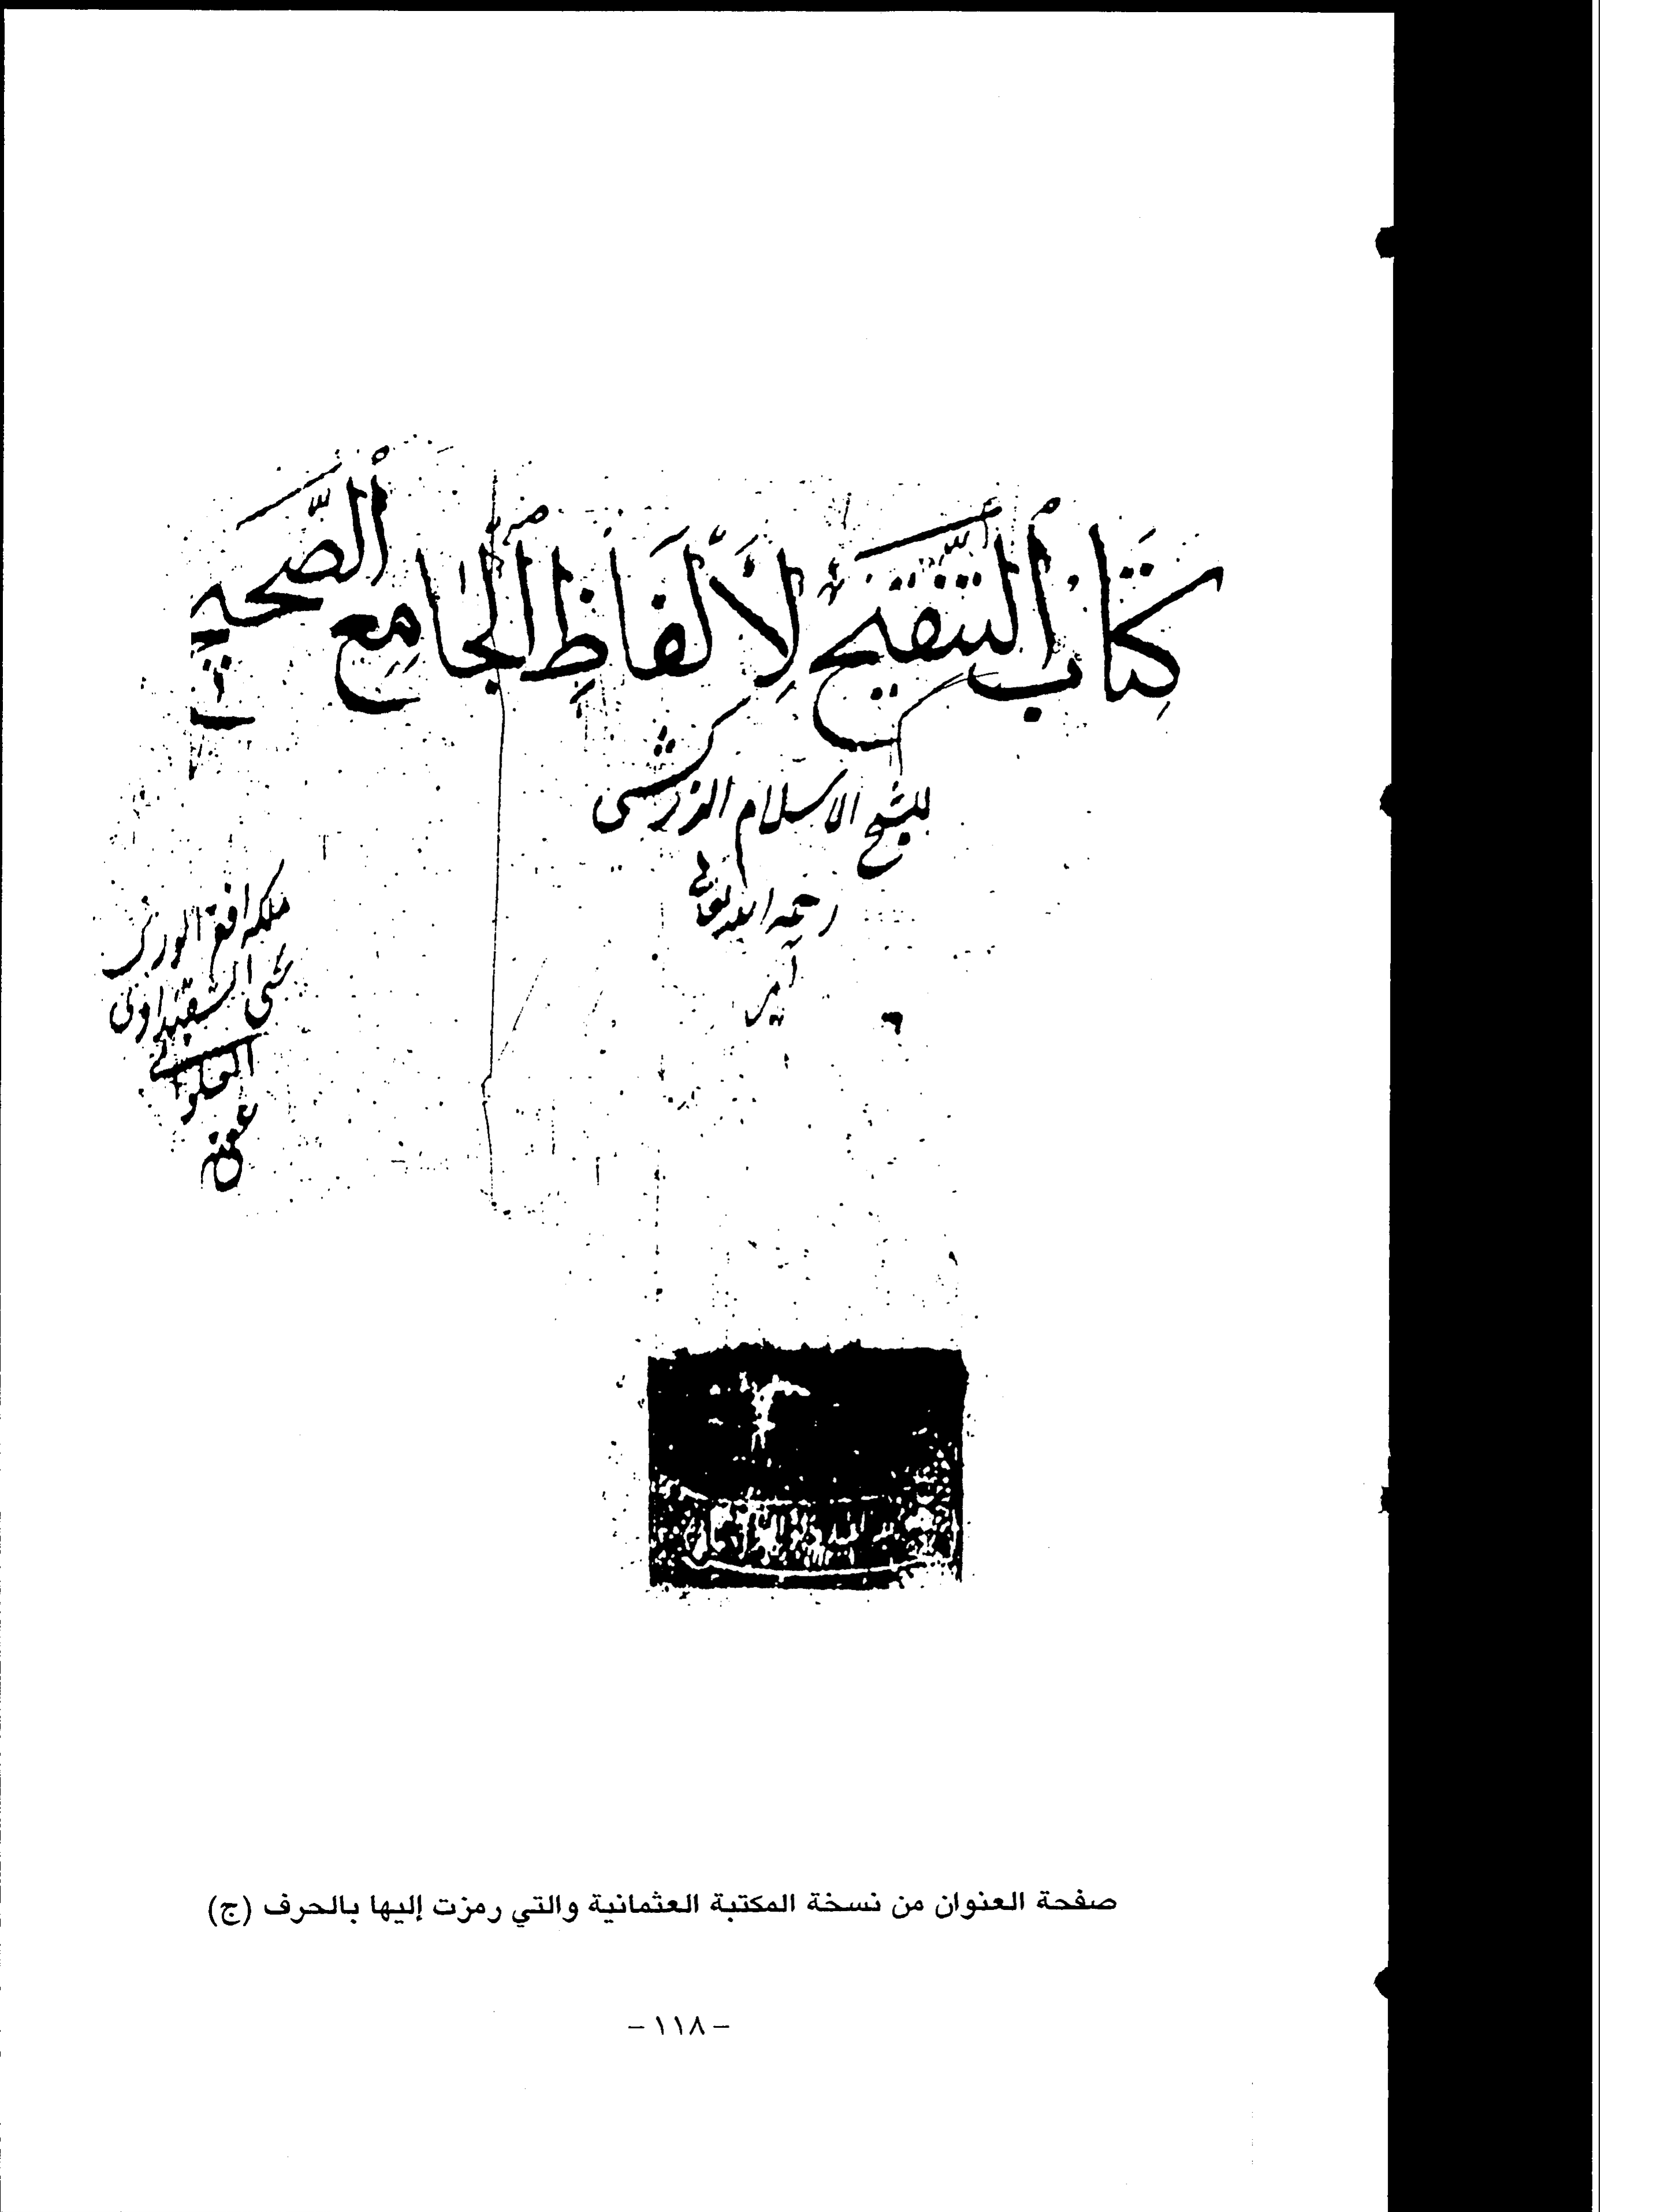 كِتَابُ ٱلتَّنْقِيحِ لِأَلْفَاظِ ٱلْجَامِعِ ٱلصَّحِيح
للشيخ الاسلام الزركشى
رحمه الله تعالى
آمين
ملكه افقر الورى
عفى عنه
صفحة العنوان من نسخة المكتبة العثمانية والتي رمزت إليها بالحرف (ج)
– ١١٨ –